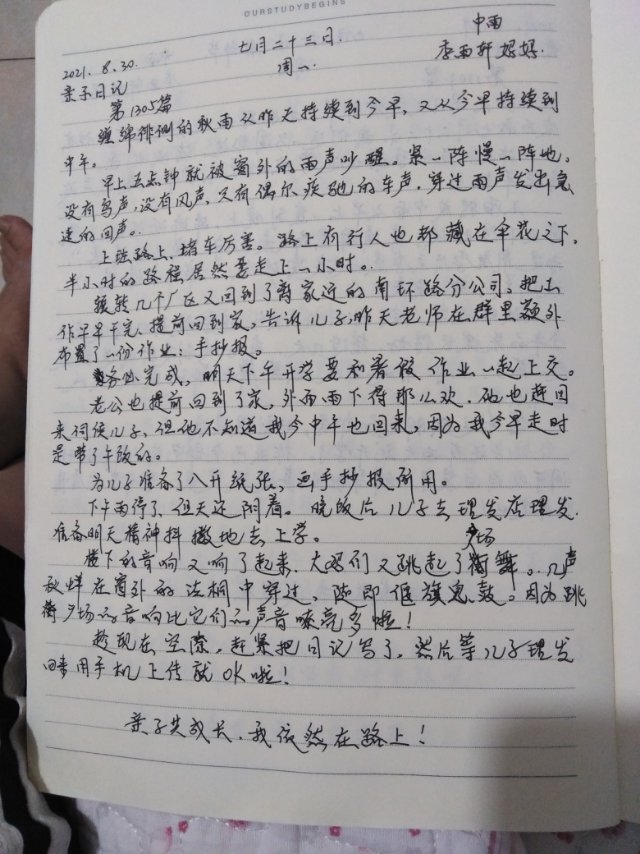 OURSTUDYBEGINS
中雨
2021. 8. 30.  七月二十三日.  李雨轩妈妈.
亲子日记  周一.
第1305篇
缠绵徘恻的秋雨从昨天持续到今早,又从今早持续到
中午.
早上五点钟就被窗外的雨声吵醒。紧一阵慢一阵地。
没有鸟声,没有风声,只有偶尔疾驰的车声,穿过雨声发出急
速的回声。
上班路上,堵车厉害。路上有行人也都藏在伞花之下.
半小时的路程居然要走上一小时。
辗转几个厂区又回到了离家近的南环路分公司。把工
作早早干完,提前回到家。告诉儿子,昨天老师在群里额外
布置了一份作业:手抄报。
务必完成,明天下午开学要和暑假作业一起上交。
老公也提前回到了家,外面雨下得那么欢,他也赶回
来伺侯儿子,但他不知道我今中午也回来,因为我今早走时
是带了午饭的.
为儿子准备了八开纸张,画手抄报所用。
下午雨停了,但天还阴着。晚饭后儿子去理发店理发.
准备明天精神抖擞地去上学。
楼下的音响又响了起来.大妈们又跳起了广场舞。几声
秋蝉在窗外的法桐中穿过,随即偃旗息鼓。因为跳
广场的音响比它们的声音嘹亮多啦!
趁现在空隙,赶紧把日记写了,然后等儿子理发
回来用手机上传就OK啦!
亲子共成长.我依然在路上!